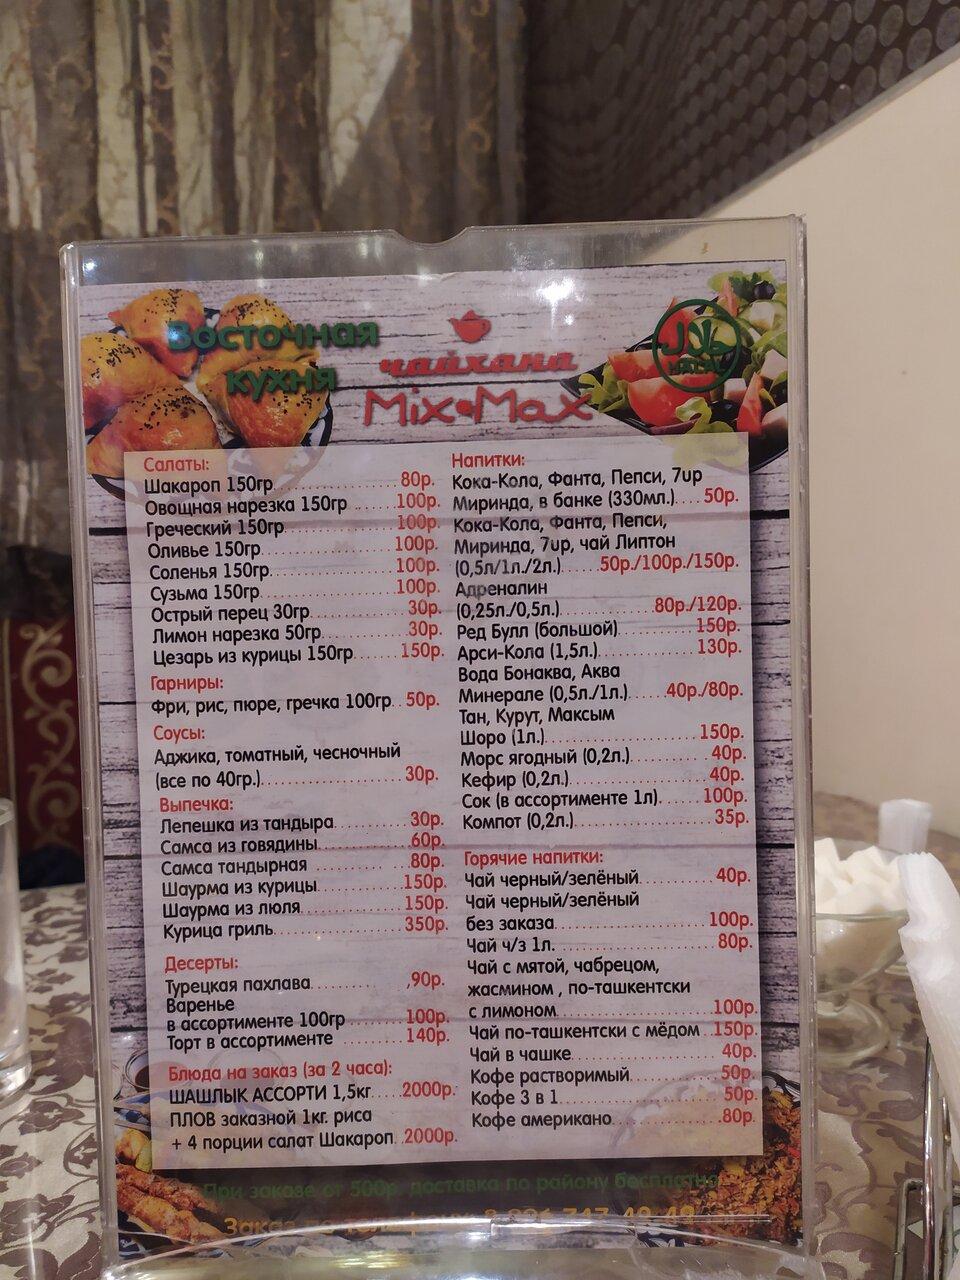 Восточная
кухня
чайхана
Mix Max
HALAL
Салаты:
Шакароп 150гр 80р.
Овощная нарезка 150гр 100р.
Греческий 150гр 100р.
Оливье 150гр 100р.
Соленья 150гр 100р.
Сузьма 150гр 100р.
Острый перец 30гр 30р.
Лимон нарезка 50гр 30р.
Цезарь из курицы 150гр 150р.
Гарниры:
Фри, рис, пюре, гречка 100гр 50р.
Соусы:
Аджика, томатный, чесночный
(все по 40гр.) 30р.
Выпечка:
Лепешка из тандыра 30р.
Самса из говядины 60р.
Самса тандырная 80р.
Шаурма из курицы 150р.
Шаурма из люля 150р.
Курица гриль 350р.
Десерты:
Турецкая пахлава ,90р.
Варенье
в ассортименте 100гр 100р.
Торт в ассортименте 140р.
Блюда на заказ (за 2 часа):
ШАШЛЫК АССОРТИ 1,5кг 2000р.
ПЛОВ заказной 1кг. риса
+ 4 порции салат Шакароп 2000р.
Напитки:
Кока-Кола, Фанта, Пепси, 7up
Миринда, в банке (330мл.) 50р.
Кока-Кола, Фанта, Пепси,
Миринда, 7up, чай Липтон
(0,5л/1л./2л.) 50р./100р./150р.
Адреналин
(0,25л./0,5л.) 80р./120р.
Ред Булл (большой) 150р.
Арси-Кола (1,5л.) 130р.
Вода Бонаква, Аква
Минерале (0,5л./1л.) 40р./80р.
Тан, Курут, Максым
Шоро (1л.) 150р.
Морс ягодный (0,2л.) 40р.
Кефир (0,2л.) 40р.
Сок (в ассортименте 1л) 100р.
Компот (0,2л.) 35р.
Горячие напитки:
Чай черный/зелёный 40р.
Чай черный/зелёный
без заказа 100р.
Чай ч/з 1л. 80р.
Чай с мятой, чабрецом,
жасмином , по-ташкентски
с лимоном 100р.
Чай по-ташкентски с мёдом 150р.
Чай в чашке 40р.
Кофе растворимый 50р.
Кофе 3 в 1 50р.
Кофе американо 80р.
При заказе от 500р. доставка по району бесплатно
Заказ